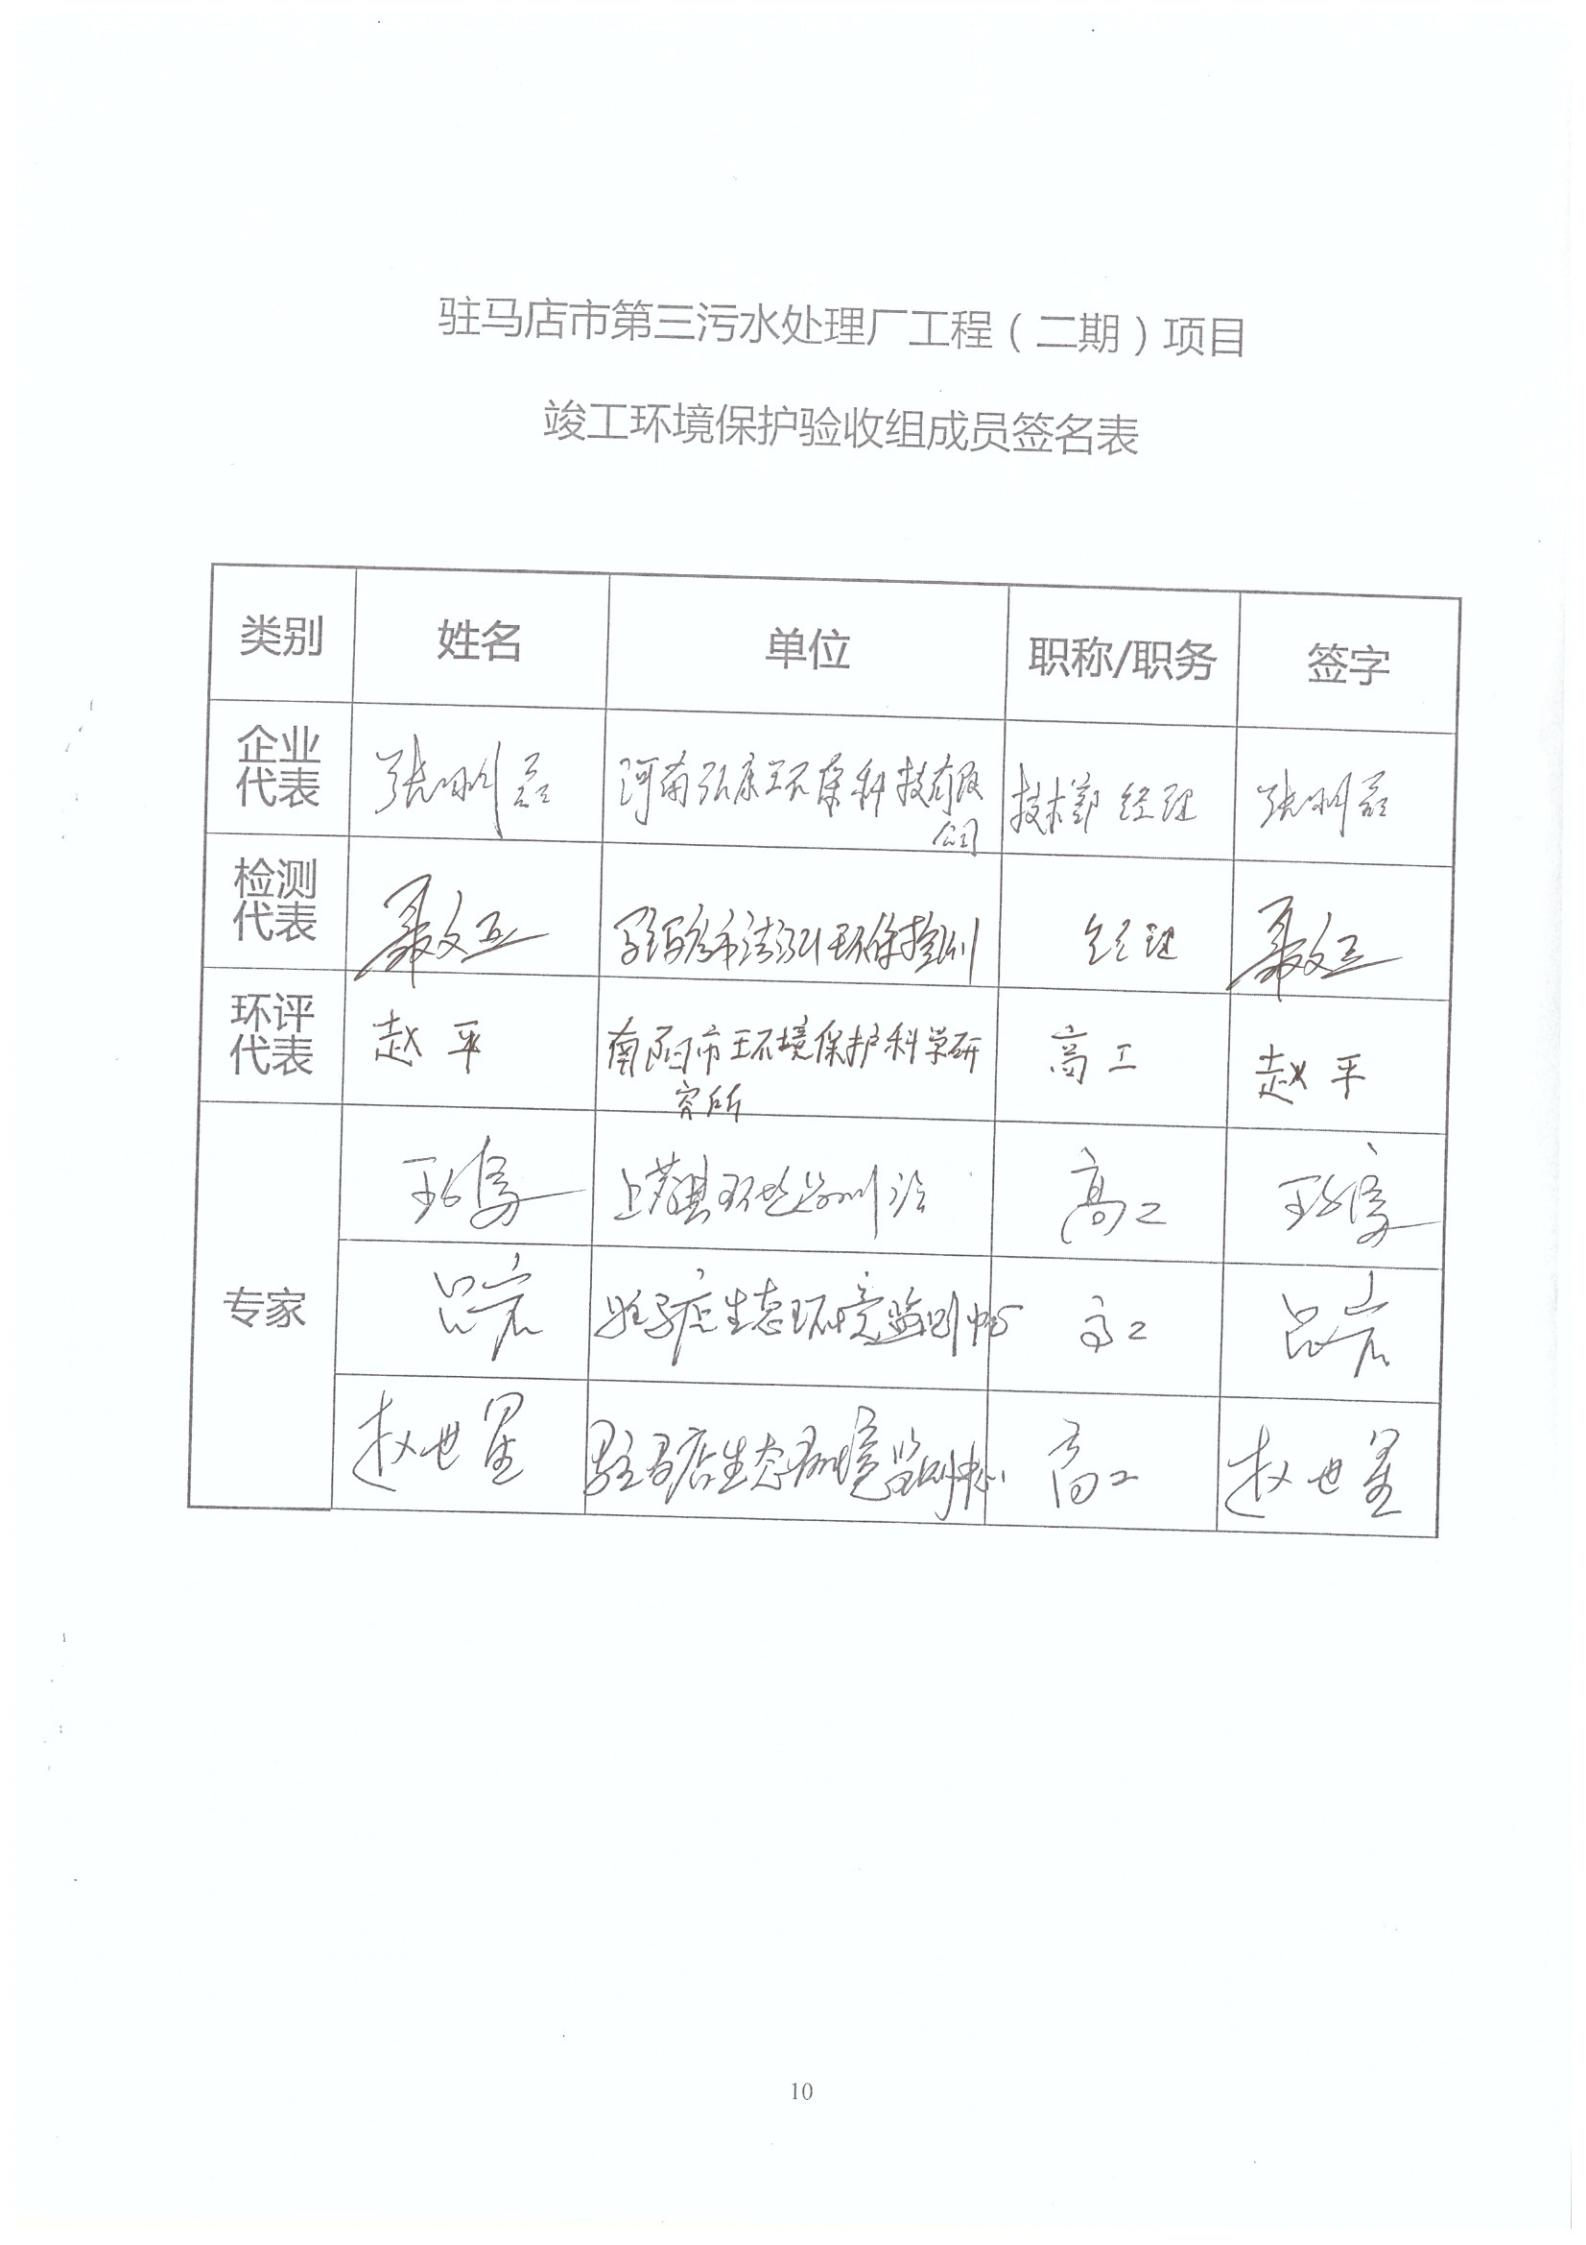 驻马店市第三污水处理厂工程（二期）项目
竣工环境保护验收组成员签名表
类别 姓名 单位 职称/职务 签字
企业
代表
张刚磊 河南弘康环保科技有限
公司
技术部 经理 张刚磊
检测
代表
聂文 驻马店市 环保检测 经理 聂文
环评
代表
赵平 南阳市环境保护科学研
究所
高工 赵平
专家
王 上蔡县环境监测站 高工 王
吕岩 驻马店生态环境监测中心 高工 吕岩
赵世星 驻马店生态环境监测中心 高工 赵世星
10